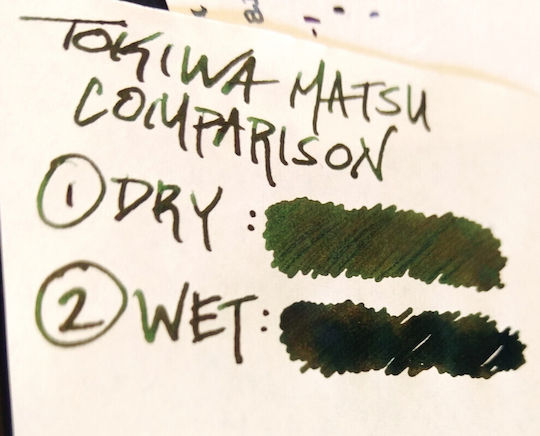 TOKIWA MATSU
COMPARISON
1 DRY :
2 WET: